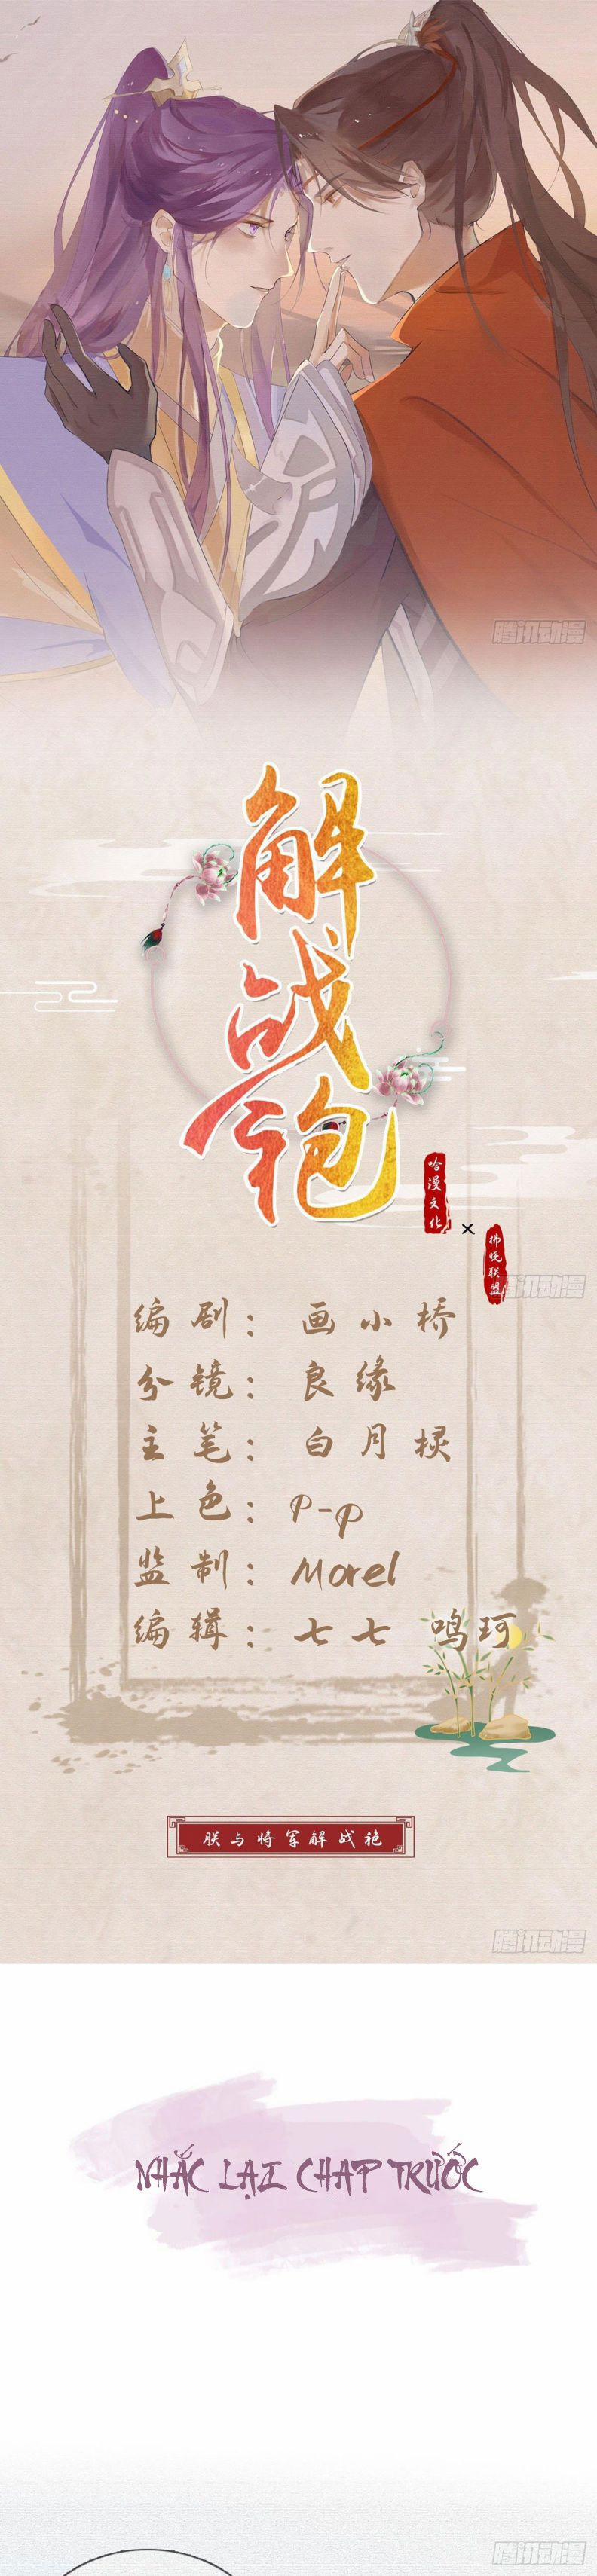 腾讯动漫
解战袍
哈漫文化
×
拂晓联盟
腾讯动漫
编剧：画小桥
分镜：良缘
主笔：白月棂
上色：P-P
监制：Morel
编辑：七七 鸣珂
朕与将军解战袍
腾讯动漫
NHẮC LẠI CHAP TRƯỚC
腾讯动漫